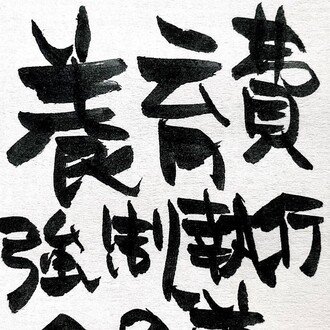 養育費
強制執行